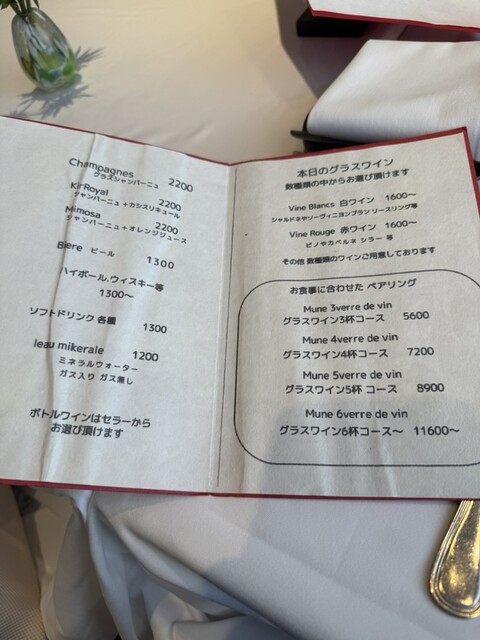 Champagnes 2200
グラスシャンパーニュ
Kir Royal 2200
シャンパーニュ+カシスリキュール
Mimosa 2200
シャンパーニュ+オレンジジュース
Biere ビール 1300
ハイボール.ウィスキー等
1300〜
ソフトドリンク 各種 1300
leau mikerale 1200
ミネラルウォーター
ガス入り ガス無し
ボトルワインはセラーから
お選び頂けます
本日のグラスワイン
数種類の中からお選び頂けます
Vine Blancs 白ワイン 1600〜
シャルドネやソーヴィニヨンブラン リースリング等
Vine Rouge 赤ワイン 1600〜
ピノやカベルネ シラー 等
その他 数種類のワインご用意しております
お食事に合わせた ペアリング
Mune 3verre de vin
グラスワイン3杯コース 5600
Mune 4verre de vin
グラスワイン4杯コース 7200
Mune 5verre de vin
グラスワイン5杯 コース 8900
Mune 6verre de vin
グラスワイン6杯コース〜 11600〜